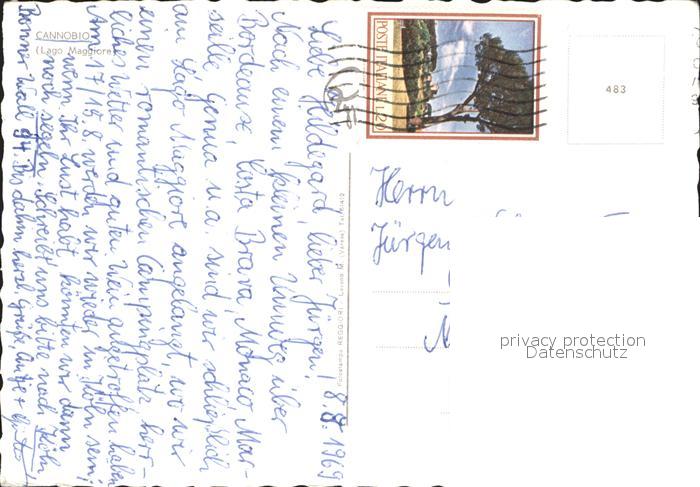 CANNOBIO
(Lago Maggiore)
POSTE ITALIANE L.20
483
Liebe Hildegard, lieber Jürgen! 8.8.1969
Nach einem kleinen Umweg über
Bordeaux, Costa Brava, Monaco, Mar-
seille, Genua u.a. sind wir schließlich
am Lago Maggiore angelangt, wo wir
einen romantischen Campingplatz, herr-
liches Wetter und guten Wein angetroffen haben.
Am 17/15.8 werden wir wieder in Köln sein;
wenn Ihr Lust habt, könnten wir dann
noch segeln. Schreibt uns bitte nach Köln,
Bonner Wall 94. Bis dahin herzl. Grüße Antje +
Herrn
Jürgen
privacy protection
Datenschutz